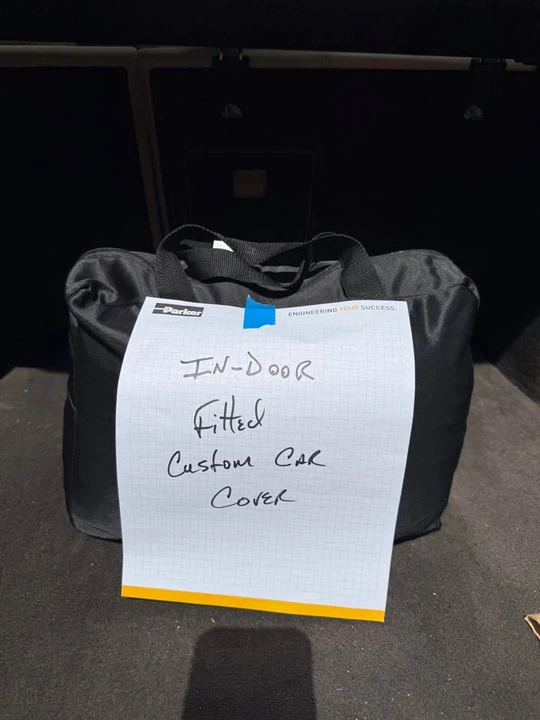 Parker
ENGINEERING YOUR SUCCESS.
IN-DOOR
Fitted
Custom CAR
COVER